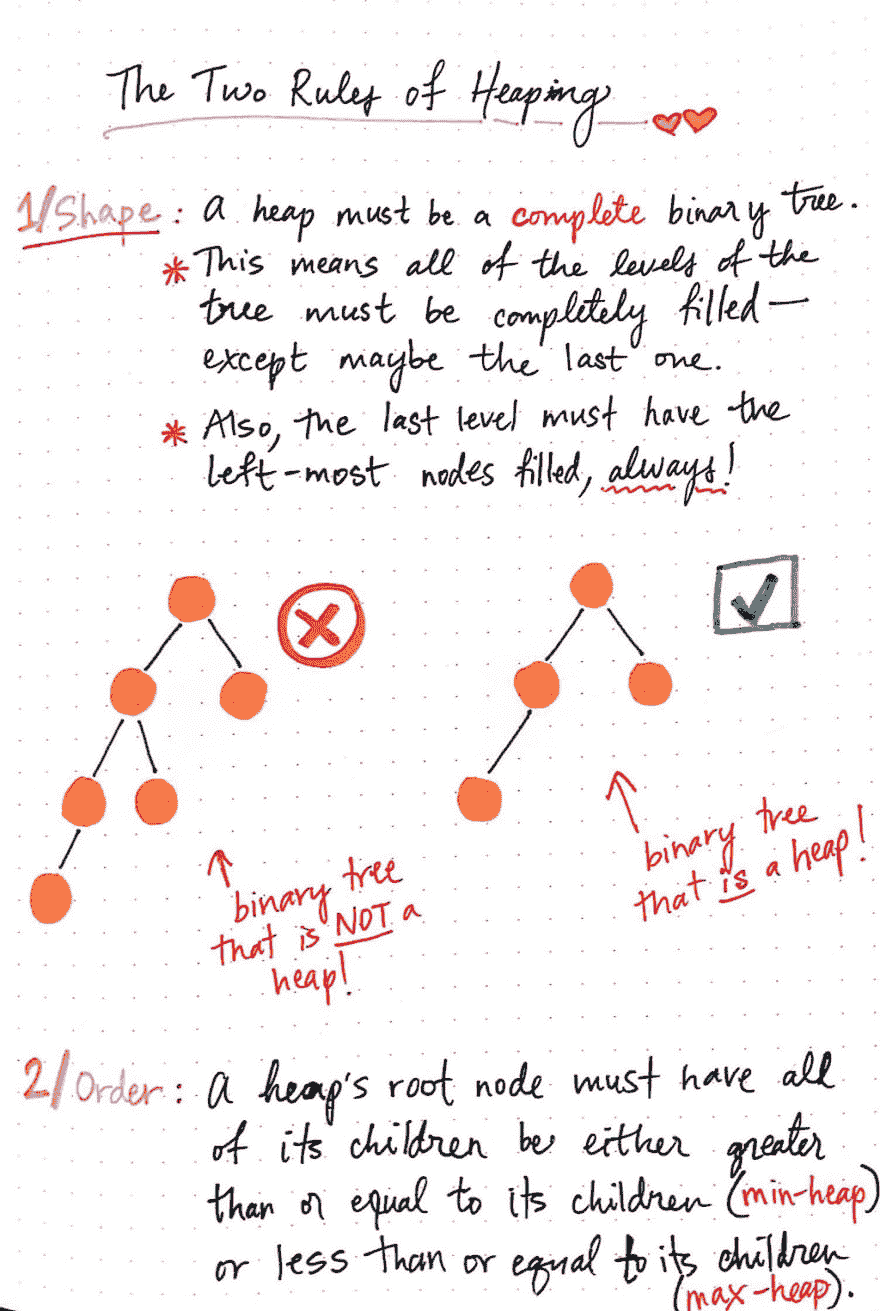 The Two Rules of Heaping
1/Shape: A heap must be a complete binary tree.
* This means all of the levels of the
tree must be completely filled—
except maybe the last one.
* Also, the last level must have the
left-most nodes filled, always!
binary tree
that is NOT a
heap!
binary tree
that is a heap!
2/Order: A heap's root node must have all
of its children be either greater
than or equal to its children (min-heap)
or less than or equal to its children
(max-heap).